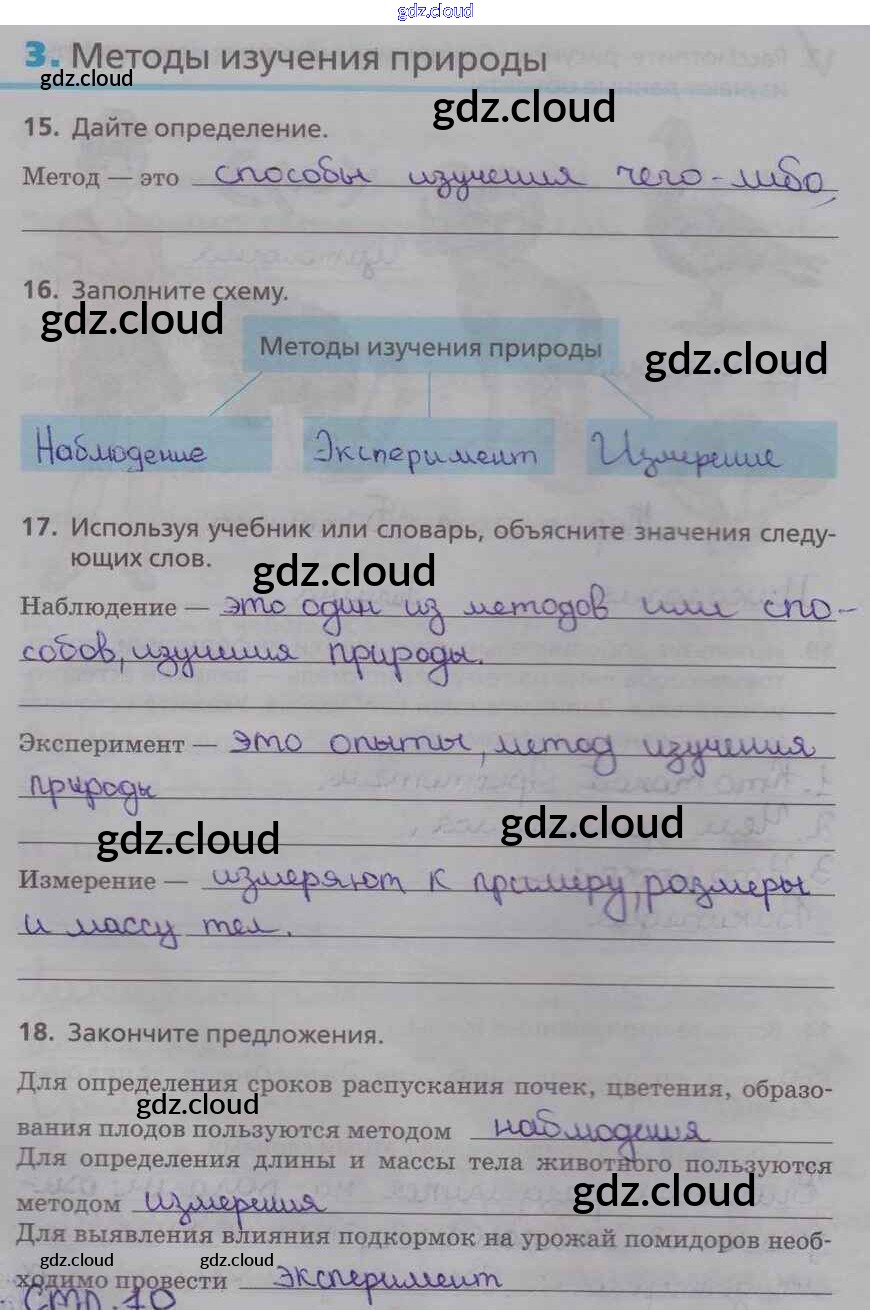 gdz.cloud
3. Методы изучения природы
gdz.cloud
gdz.cloud
15. Дайте определение.
Метод — это способы изучения чего-либо
16. Заполните схему.
gdz.cloud
Методы изучения природы
gdz.cloud
Наблюдение Эксперимент Измерение
17. Используя учебник или словарь, объясните значения следу-
ющих слов.
gdz.cloud
Наблюдение — это один из методов или спо-
собов, изучения природы.
Эксперимент — это опыты, метод изучения
природы
gdz.cloud gdz.cloud
Измерение — измеряют к примеру, размеры
и массу тел.
18. Закончите предложения.
Для определения сроков распускания почек, цветения, образо-
gdz.cloud
вания плодов пользуются методом наблюдения
Для определения длины и массы тела животного пользуются
gdz.cloud
методом измерения
Для выявления влияния подкормок на урожай помидоров необ-
gdz.cloud gdz.cloud
ходимо провести эксперимент
стр. 10